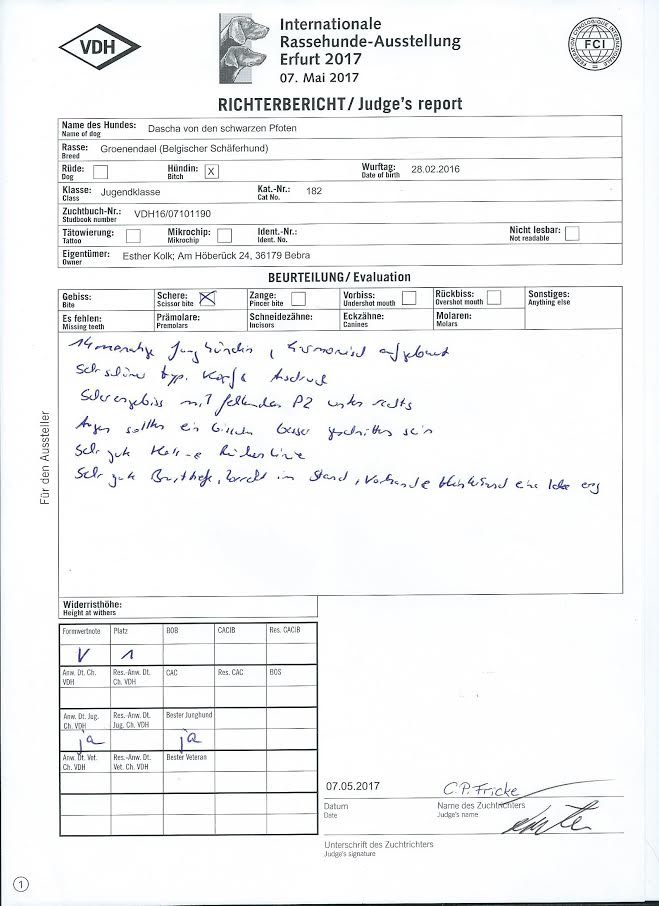 VDH
Internationale
Rassehunde-Ausstellung
Erfurt 2017
07. Mai 2017
FEDERATION CYNOLOGIQUE INTERNATIONALE
FCI
RICHTERBERICHT / Judge's report
Name des Hundes: Dascha von den schwarzen Pfoten
Name of dog
Rasse: Groenendael (Belgischer Schäferhund)
Breed
Rüde: Hündin: X Wurftag: 28.02.2016
Dog Bitch Date of birth
Klasse: Jugendklasse Kat.-Nr.: 182
Class Cat No.
Zuchtbuch-Nr.: VDH16/07101190
Studbook number
Tätowierung: Mikrochip: Ident.-Nr.: Nicht lesbar:
Tattoo Mikrochip Ident. No. Not readable
Eigentümer: Esther Kolk; Am Höberück 24, 36179 Bebra
Owner
BEURTEILUNG / Evaluation
Gebiss: Schere: X Zange: Vorbiss: Rückbiss: Sonstiges:
Bite Scissor bite Pincer bite Undershot mouth Overshot mouth Anything else
Es fehlen: Prämolare: Schneidezähne: Eckzähne: Molaren:
Missing teeth Premolars Incisors Canines Molars
14 monatige Junghündin, harmonisch aufgebaut
Sehr schöne typ. Kopf & Ausdruck
Scherengebiss mit fehlenden P2 unten rechts
Augen sollten ein bisschen besser geschnitten sein
Sehr gute Hals- Rückenlinie
Sehr gute Brusttiefe, korrekt im Stand, Vorhand eine eng
Für den Aussteller
Widerristhöhe:
Height at withers
Formwertnote Platz BOB CACIB Res. CACIB
V 1
Anw. Dt. Ch. VDH Res.-Anw. Dt. Ch. VDH CAC Res. CAC BOS
Anw. Dt. Jug. Ch. VDH Res.-Anw. Dt. Jug. Ch. VDH Bester Junghund
ja ja
Anw. Dt. Vet. Ch. VDH Res.-Anw. Dt. Vet. Ch. VDH Bester Veteran
07.05.2017 C.P. Fricke
Datum Name des Zuchtrichters
Date Judge's name
Unterschrift des Zuchtrichters
Judge's signature
1